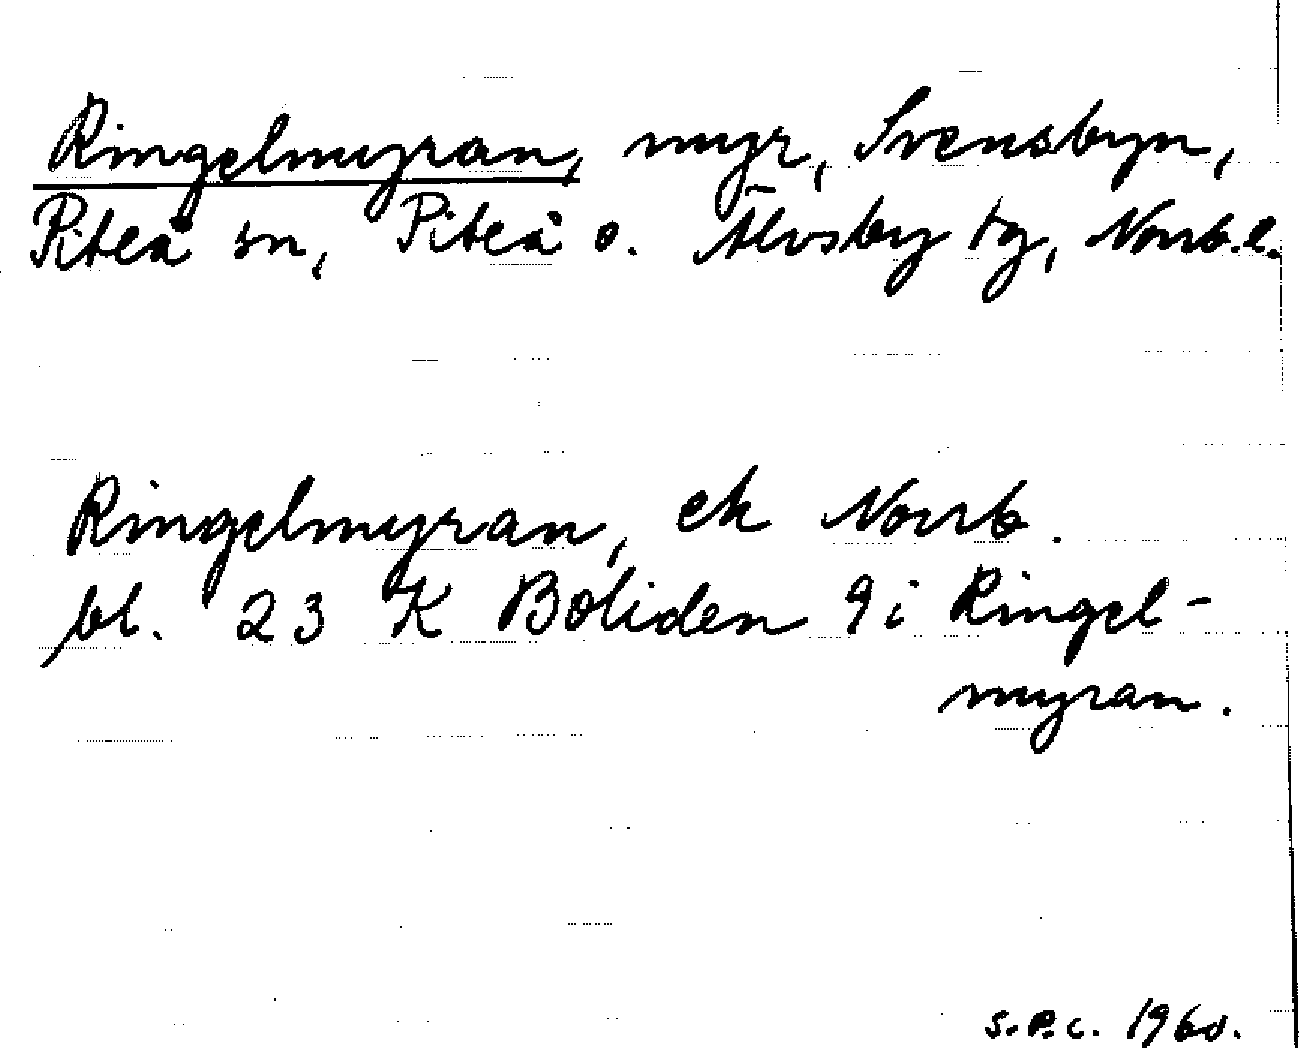 Ringelmyran, myr, Svensbyn,
Piteå sn, Piteå o. Älvsby tg, Norrb.l.
Ringelmyran, ek Norrb.
bl. 23 K Boliden 9i Ringel-
myran.
S.P.C. 1960.